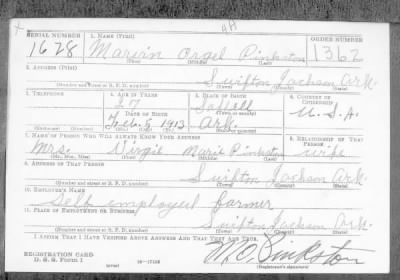 4A
SERIAL NUMBER 1. NAME (Print) ORDER NUMBER
1628 Marvin Orael Pinkston 1362
(First) (Middle) (Last)
2. ADDRESS (Print)
Swifton Jackson Ark.
(Number and street or R. F. D. number) (Town) (County) (State)
3. TELEPHONE 4. AGE IN YEARS 5. PLACE OF BIRTH 6. COUNTRY OF CITIZENSHIP
27
DATE OF BIRTH (Town or county) U.S.A.
Feb. 8 1913 Ark.
(Mo.) (Day) (Yr.) (State or country)
7. NAME OF PERSON WHO WILL ALWAYS KNOW YOUR ADDRESS 8. RELATIONSHIP OF THAT PERSON
Mrs. Virgie Marie Pinkston wife
(Mr., Mrs., Miss) (First) (Middle) (Last)
9. ADDRESS OF THAT PERSON
Swifton Jackson Ark.
(Number and street or R. F. D. number) (Town) (County) (State)
10. EMPLOYER'S NAME
Self employed farmer
11. PLACE OF EMPLOYMENT OR BUSINESS
Swifton Jackson Ark.
(Number and street or R. F. D. number) (Town) (County) (State)
I AFFIRM THAT I HAVE VERIFIED ABOVE ANSWERS AND THAT THEY ARE TRUE.
REGISTRATION CARD
D. S. S. Form 1 16-17105 Pinkston
(Registrant's signature)